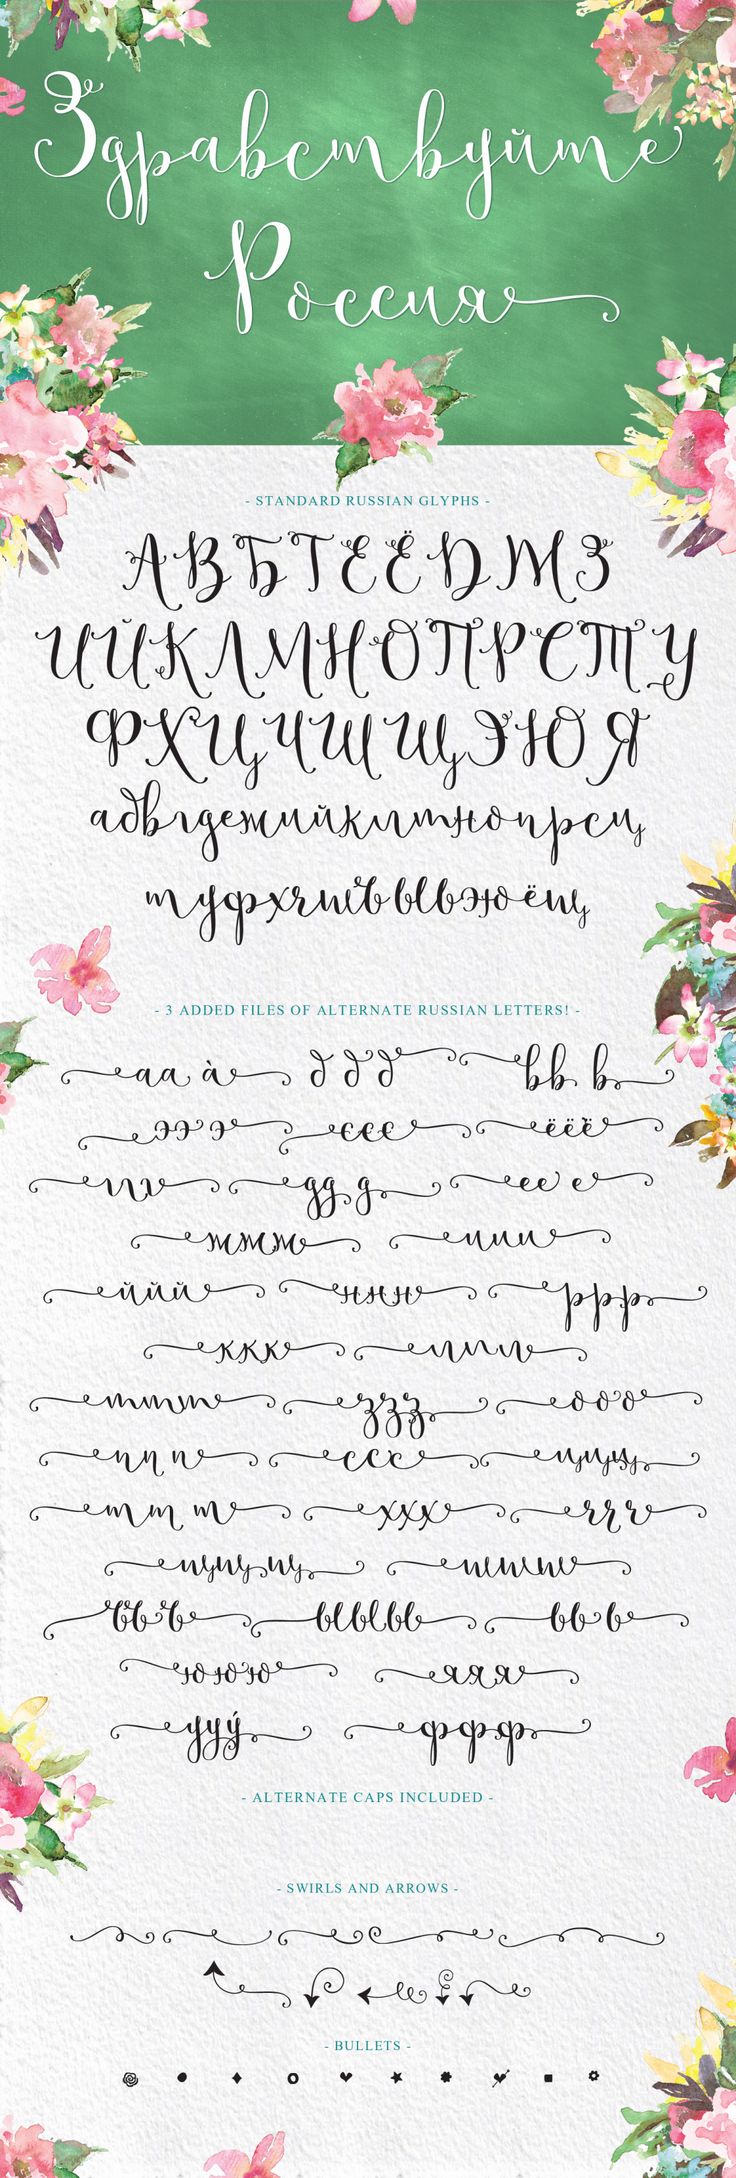 Здравствуйте
Россия
- STANDARD RUSSIAN GLYPHS -
АВБГЕЁДЖЗ
ИЙКЛМНОПРСТУ
ФХЦЧШЩЭЮЯ
абвгдежийклмнопрсц
туфхчшъыьэюёщ
- 3 ADDED FILES OF ALTERNATE RUSSIAN LETTERS! -
аа à ддд вв в
ээ э єєє ёёё
ггг gg g ее е
жжж иии
ййй ннн ррр
ккк ллл
ммм ззз ооо
пп п ссс цццц
тт т ххх ччч
щщ щ шшш
ъъ ъ ыыы ьь ь
ююю яяя
ууу́ ффф
- ALTERNATE CAPS INCLUDED -
- SWIRLS AND ARROWS -
- BULLETS -